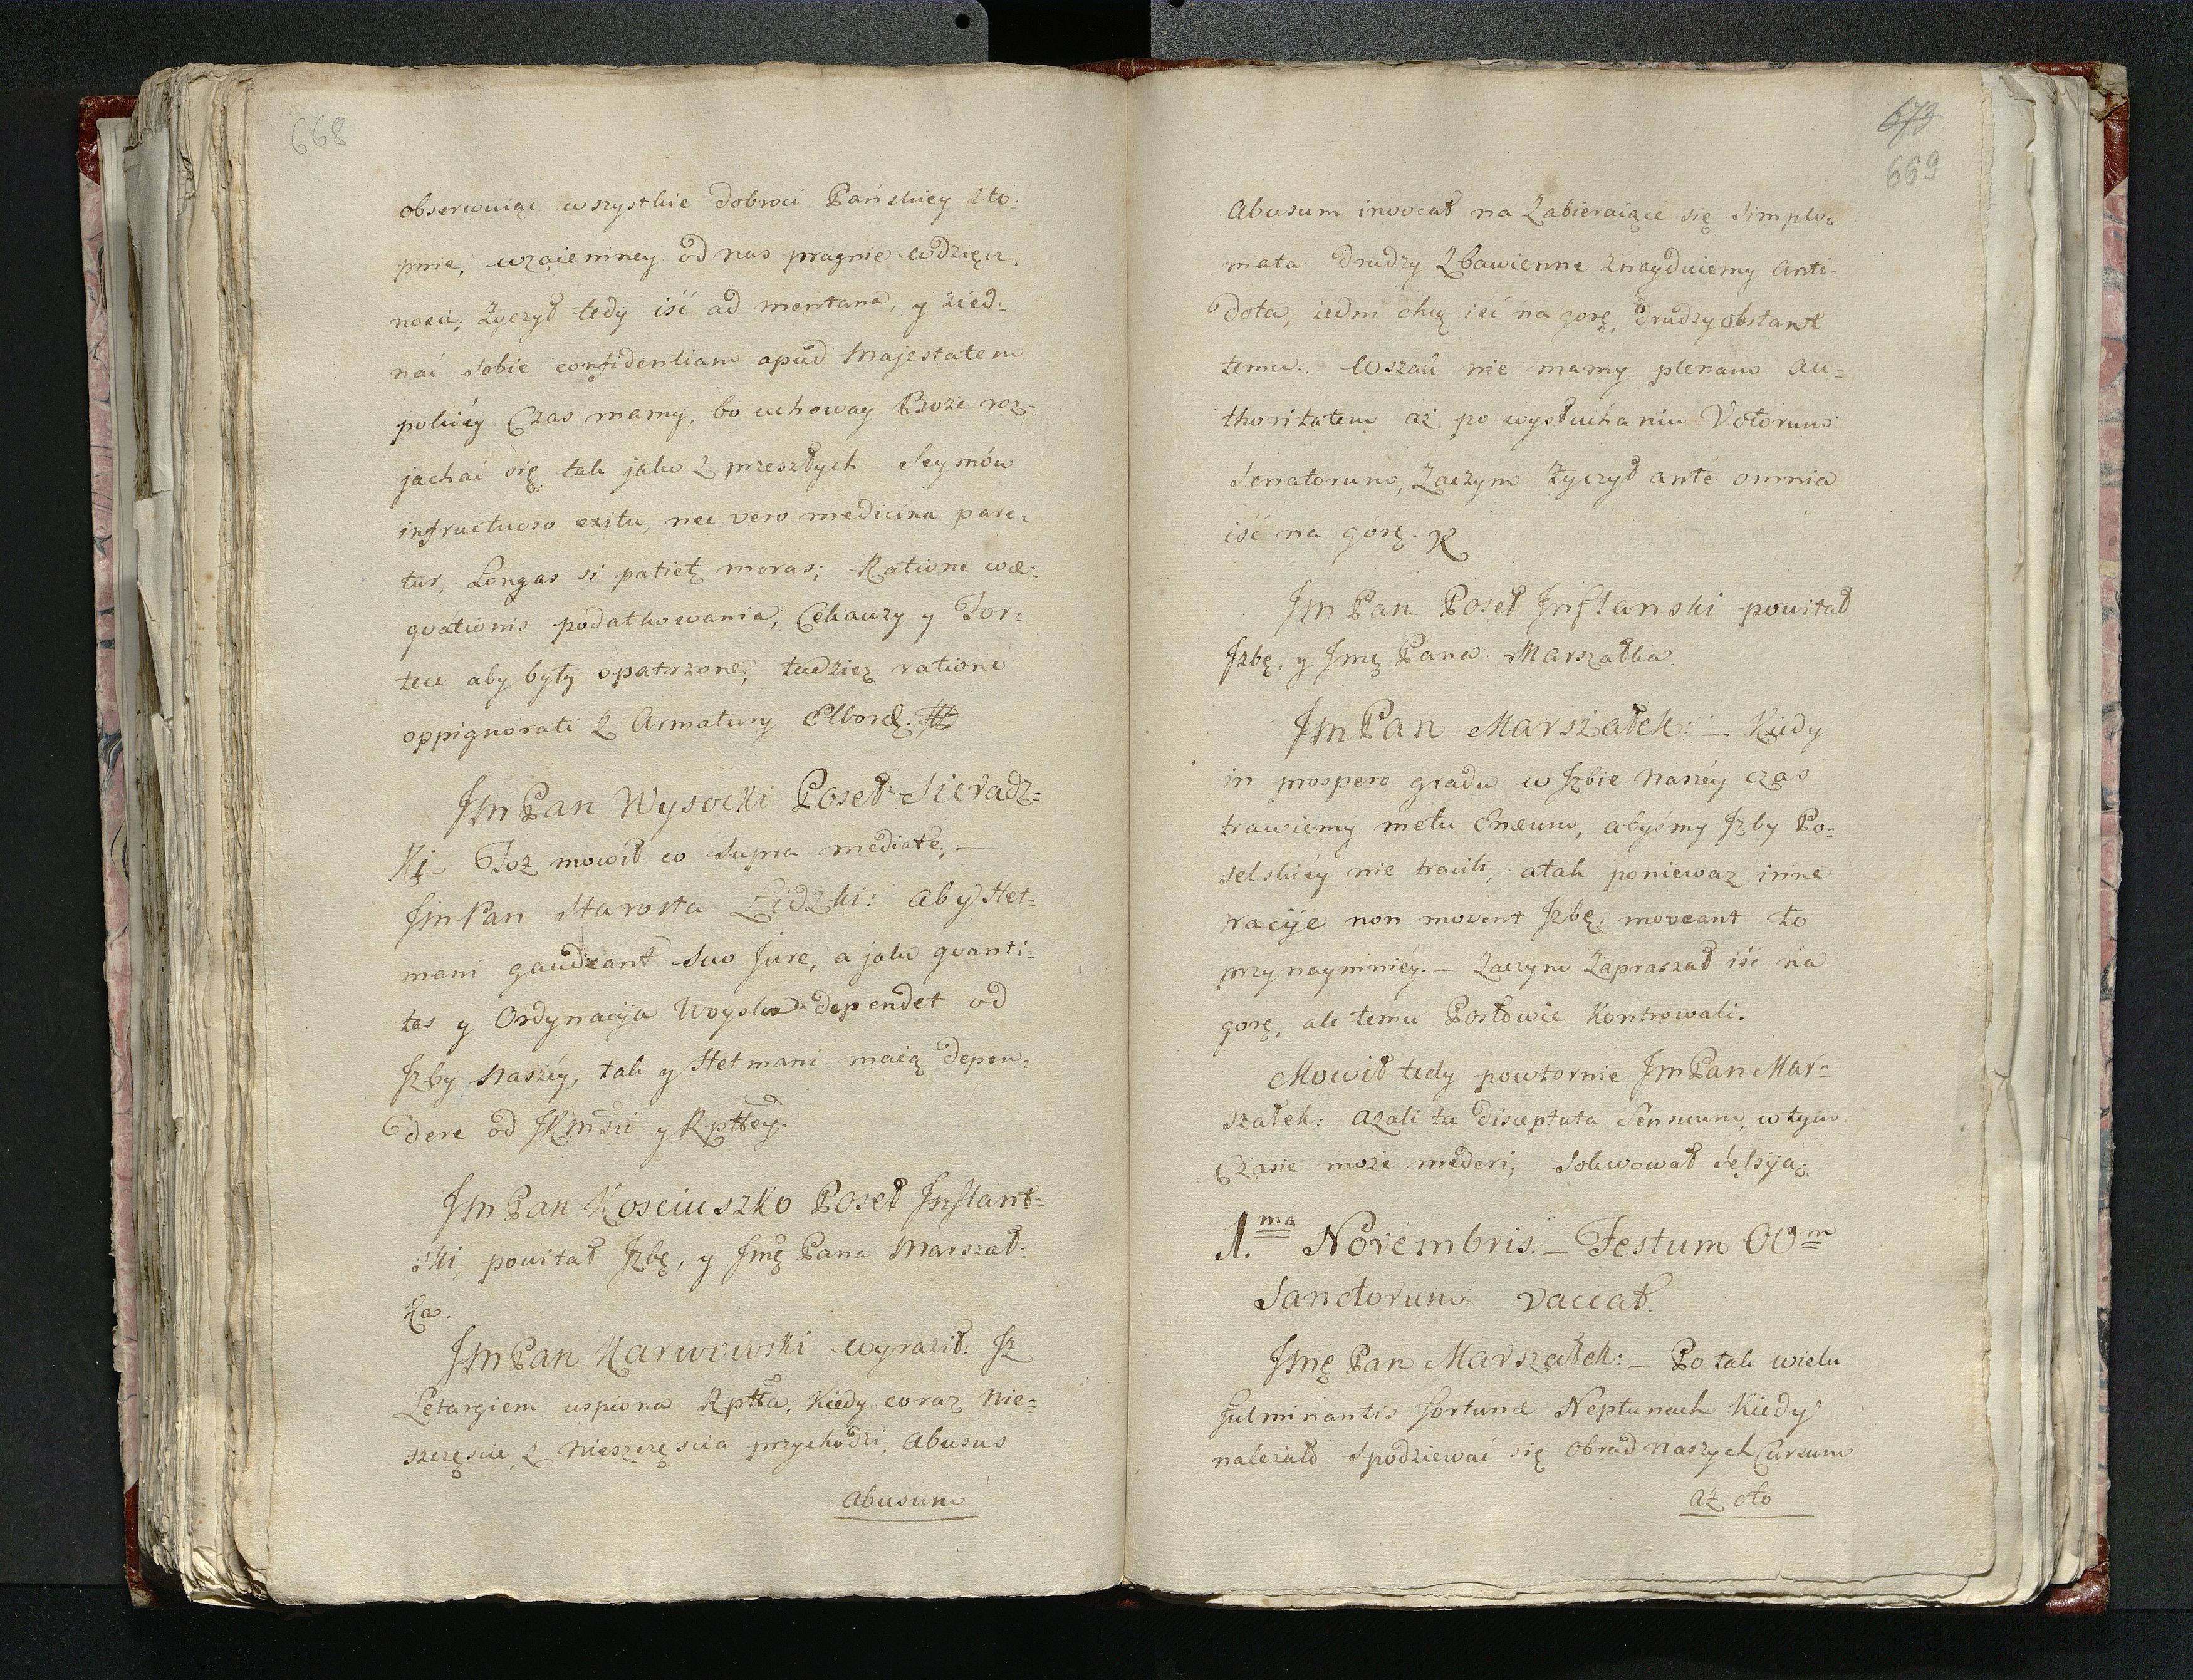 668
obserwuiąc wszystkie dobroci Pańskiey sto=
pnie, wzaiemney od nas pragnie wdzięcz.
nosci; życzył tedy iść ad mentana, y zied=
nać sobie confidentiam apud Majestatem
pokiéy Czas mamy, bo uchoway Boże roz=
jachać się tak jako z przeszłych Seymów
infructuoso exitu, nec vero medicina pare=
tur, Longas si patiet moras; Ratione coæ=
qvationis podatkowania, Cekauzy y For=
tece aby były opatrzone, tudzież ratione
oppignorati z Armatury Elbordæ.
Jm Pan Wysocki Poseł Sieradz=
Ki Toż mowił co supra mediate; —
Jm Pan Starosta Lidzki: aby Het=
mani gaudeant suo Jure, a jako qvanti=
tas y Ordynacyja Woyska dependet od
Jzby Naszéy, tak y Hetmani maią depen=
dere od JKmści y Rpłtey.
Jm Pan Kosciuszko Poseł Jnflant=
ski, powitał Jzbę, y Jmę Pana Marszał=
Ka.
Jm Pan Karwowski wyraził: Jż
Letargiem uspiona Rpłta, Kiedy coraz Nie=
szczęscie z Nieszczęscia przychodzi, Abusus
abusum
673
669
Abusum invocat na Zabieraiące się Simpto=
mata drudzy Zbawienne znayduiemy Anti=
dota, iedni chcą iść na gorę, drudzy obstant
temu. Wszak nie mamy plenam Au=
thoritatem aż po wysłuchaniu Votorum
Senatorum, Zaczym życzył ante omnia
iść na górę.
Jm Pan Poseł Jnflanski powitał
Jzbę, y Jmę Pana Marszałka.
Jm Pan Marszałek: — Kiedy
in prospero gradu w Jzbie Naszéy czas
trawiemy metu Enæum, abyśmy Jzby Po=
selskiéy nie tracili, a tak ponieważ inne
racyje non movent Jzbę, moveant to
przynaymniéy. — Zaczym Zapraszał iść na
gorę, ale temu Posłowie Kontrowali.
Mowił tedy powtornie Jm Pan Mar=
szałek: Azali ta disceptata Sensuum, w tym
Czasie może mederi; Solwował Sessyją.
1.ma Novembris. — Festum OOm
Sanctorum vaccat.
Jmę Pan Marszałek: — Po tak wielu
fulminantis fortunæ Neptunach Kiedy
należało Spodziewać się Obrad Naszych Cursum
aż oto